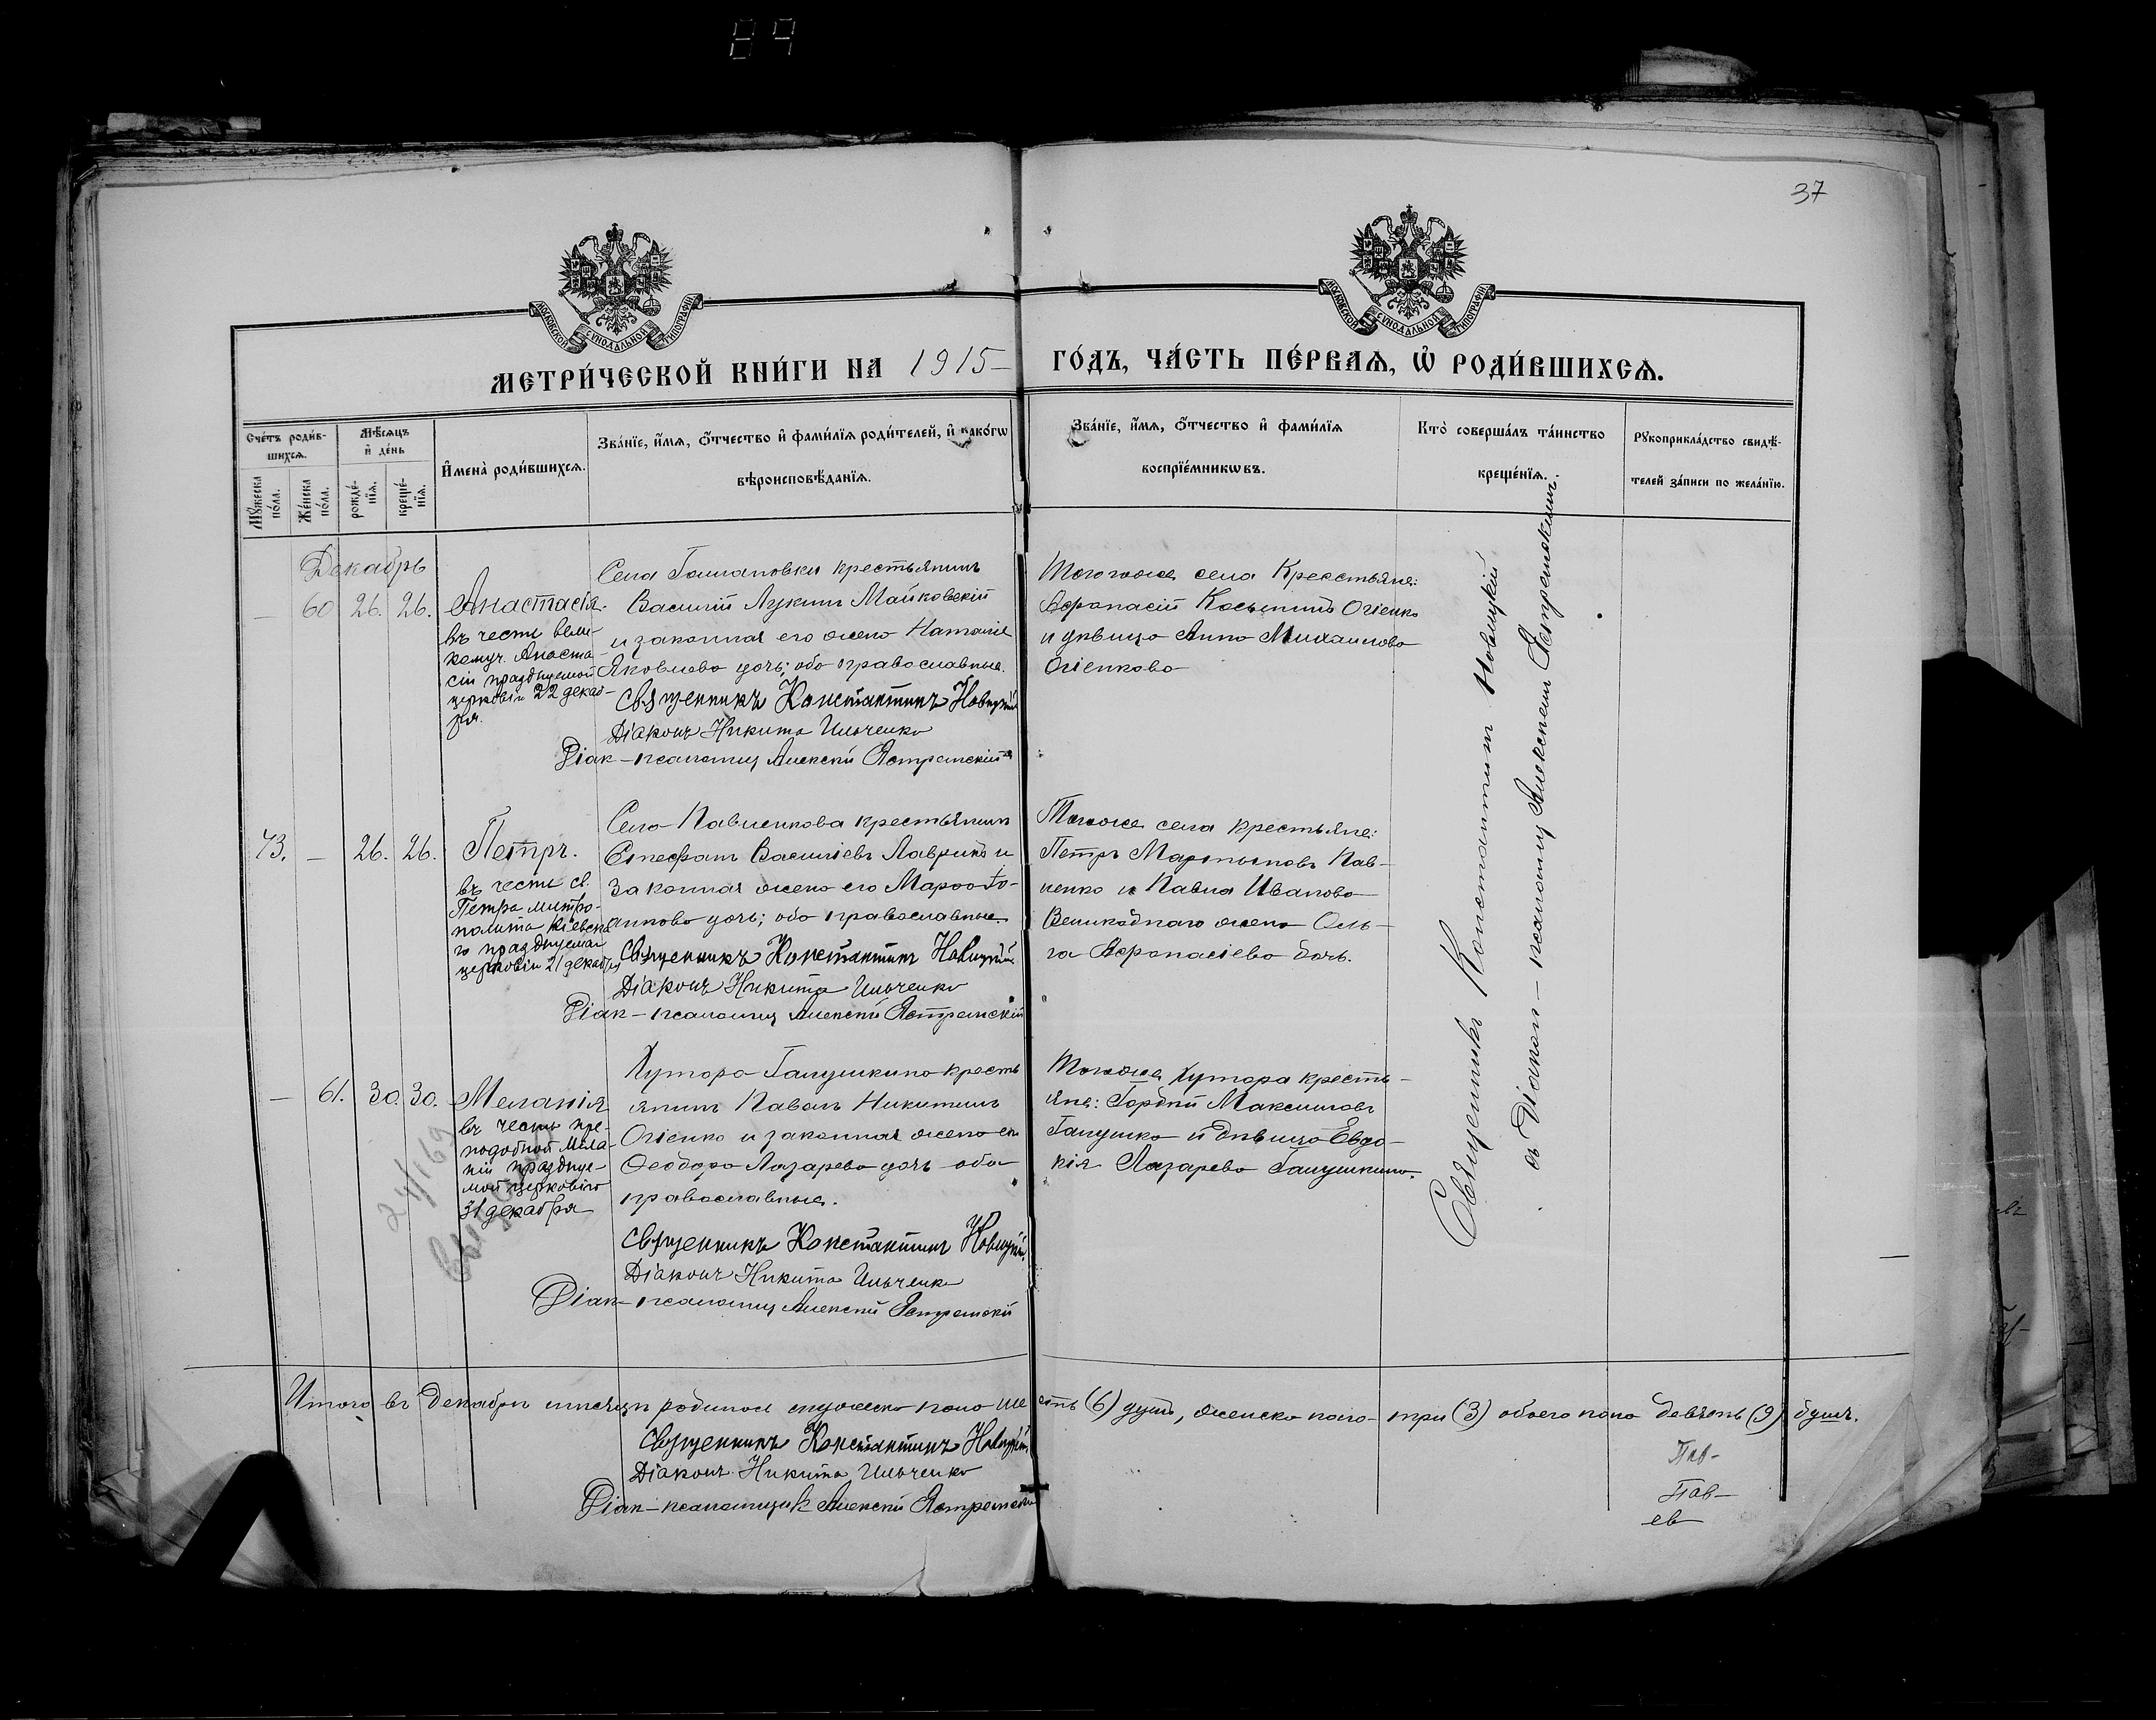 89
37
МОСКОВСКОЙ СѴНОДАЛЬНОЙ ТИПОГРАФІИ
МОСКОВСКОЙ СѴНОДАЛЬНОЙ ТИПОГРАФІИ
МЕТРИ́ЧЕСКОЙ КНИ́ГИ НА 1915 ГО́ДЪ, ЧА́СТЬ ПЕ́РВАѦ, Ѡ҆ РОДИ́ВШИХСѦ.
Сче́тъ роди́в-
шихсѧ.
Мꙋ́жеска
по́ла.
Же́нска
по́ла.
Мѣ́сѧцъ
и҆ де́нь
рожде́-
нїѧ.
креще́-
нїѧ.
И҆мена̀ роди́вшихсѧ.
Зва́нїе, и҆́мѧ, ѻ҆́тчество и҆ фами́лїѧ роди́телей, и҆ како́гѡ
вѣроисповѣ́данїѧ.
Зва́нїе, и҆́мѧ, ѻ҆́тчество и҆ фами́лїѧ
воспрїе́мникѡвъ.
Кто̀ соверша́лъ та́инство
креще́нїѧ.
Рꙋкоприкла́дство свидѣ́-
телей за́писи по жела́нїю.
Декабрь
— 60 26. 26. Анастасія.
въ честь вели-
комуч. Анаста-
сіи празднуемой
церковію 22 декаб-
ря.
Села крестьянинъ
Василій Лукинъ Майковскій
и законная его жена Наталія
Яковлева дочь; оба православные.
Священникъ Константинъ Новицкій
Діаконъ Никита Ильченко
Діак-псаломщ Алексій Ястремскій
Того-же села Крестьяне:
Афонасій Косьминъ Огіенко
и дѣвица Анна Михаилова
Огіенкова
73. — 26. 26. Петръ.
въ честь св.
Петра митро-
полита Кіевска-
го празднуемаго
церковію 21 декабря
Села Павленкова крестьянинъ
Стефанъ Васильевъ и
законная жена его Марѳа Іо-
аннова дочь; оба православные.
Священникъ Константинъ Новицкій
Діаконъ Никита Ильченко
Діак-псаломщ Алексій Ястремскій
Тогоже села крестьяне:
Петръ Мартыновъ Пав-
ленко и Павла Иванова
жена Оль-
га Афонасіева дочь.
— 61. 30. 30. Меланія
въ честь пре-
подобной Мела-
ніи празднуе-
мой церковію
31 декабря
Хутора Галушкина кресть
янинъ Павелъ Никитинъ
Огіенко и законная жена его
Ѳеодора Лазарева дочь оба
православные.
Священникъ Константинъ Новицкій.
Діаконъ Никита Ильченко
Діак-псаломщ Алексій Ястремскій
Тогоже Хутора кресть-
яне: Гордѣй Максимовъ
Галушка и дѣвица Евдо-
кія Лазарева Галушкина.
Священникъ Константинъ Новицкій
съ Діакон-псаломщ Алексѣемъ Ястремскимъ.
Итого въ Декабрѣ мѣсяцѣ родилось мужеска пола шесть (6) душъ, женска пола три (3) обоего пола девять (9) душъ.
Священникъ Константинъ Новицкій
Діаконъ Никита Ильченко
Діак-псаломщикъ Алексій Ястремскій
Пав-
Пав-
ев